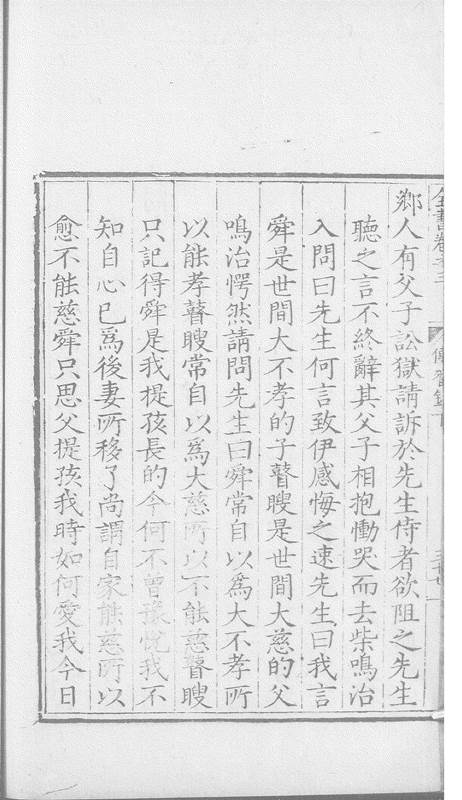 全書卷之三 傳習錄下
鄉人有父子訟獄請訴於先生侍者欲阻之先生
聽之言不終辭其父子相抱慟哭而去柴鳴治
入問曰先生何言致伊感悔之速先生曰我言
舜是世間大不孝的子瞽瞍是世間大慈的父
鳴治愕然請問先生曰舜常自以爲大不孝所
以能孝瞽瞍常自以爲大慈所以不能慈瞽瞍
只記得舜是我提孩長的今何不曾豫悅我不
知自心已爲後妻所移了尚謂自家能慈所以
愈不能慈舜只思父提孩我時如何愛我今日